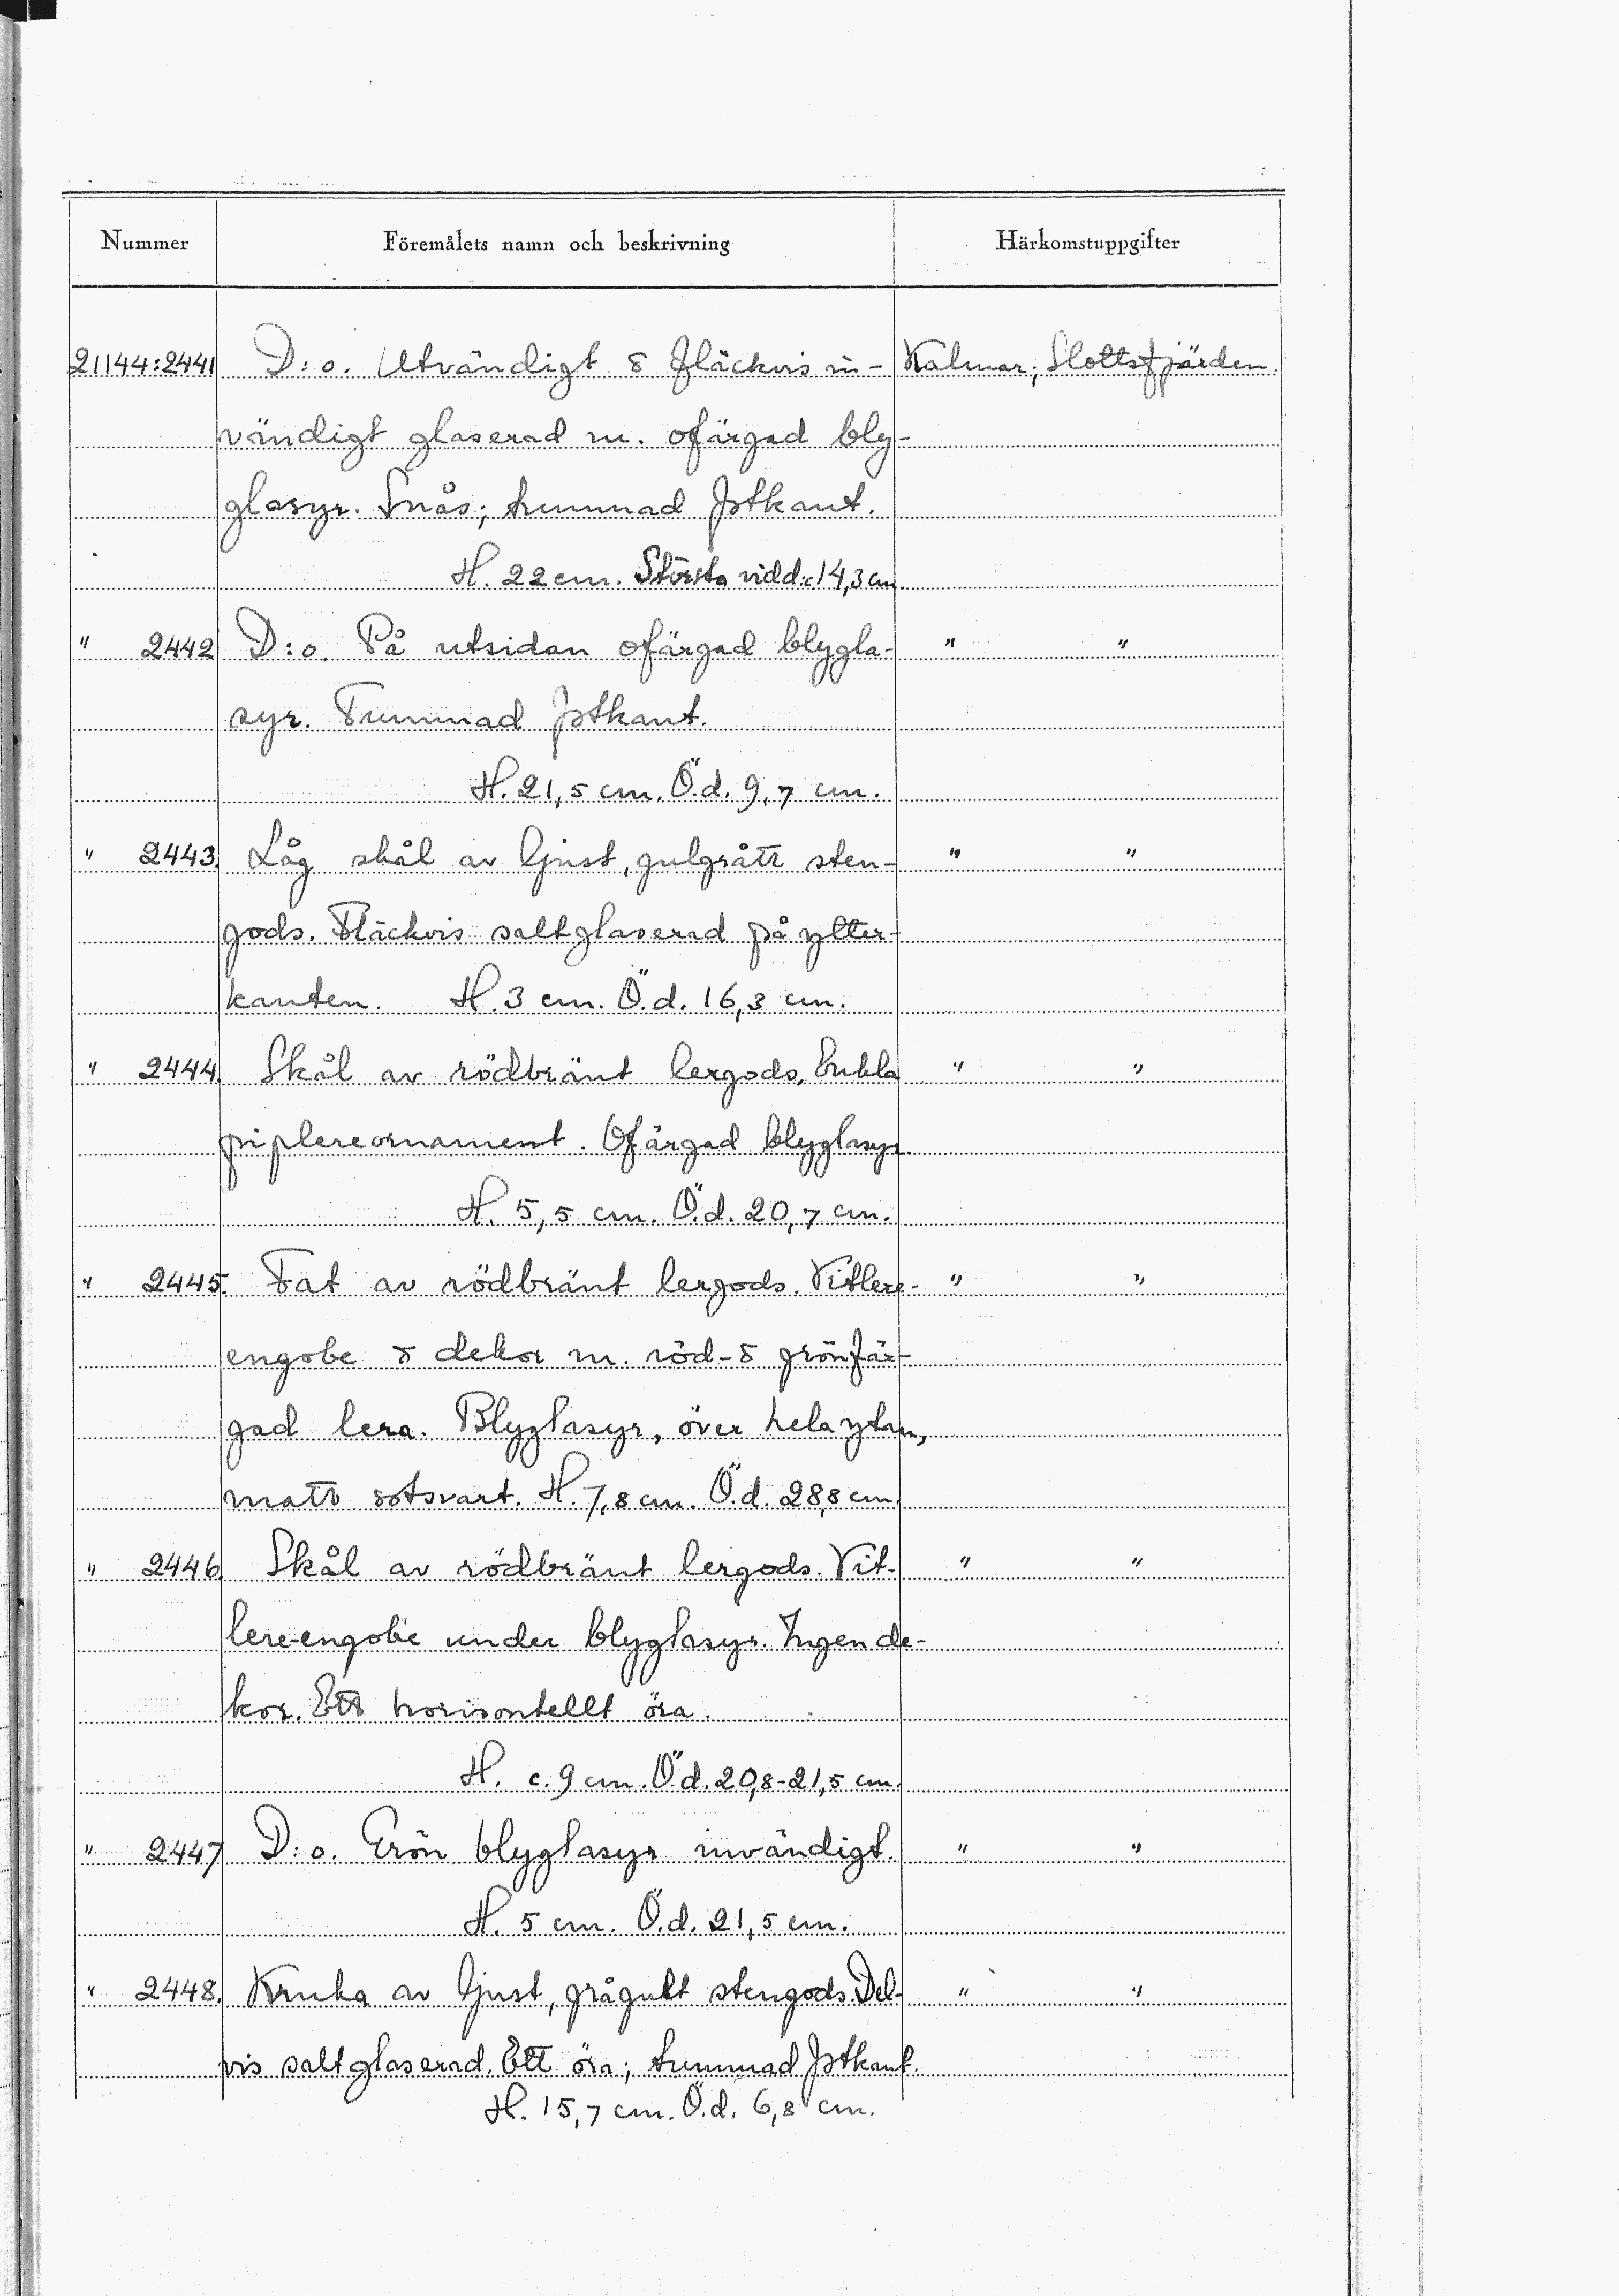 Nummer Föremålets namn och beskrivning Härkomstuppgifter
21144:2441 D:o. Utvändigt & fläckvis in- Kalmar; Slottsfjärden.
vändigt glaserad m. ofärgad bly-
glasyr. Snås; tummad fotkant.
H. 22 cm. Största vidd: c. 14,3 cm
" 2442 D:o. På utsidan ofärgad blygla- " "
syr. Tummad fotkant.
H. 21,5 cm. Ö.d. 9,7 cm.
" 2443. Låg skål av ljust, gulgrått sten- " "
gods. Fläckvis saltglaserad på ytter-
kanten. H. 3 cm. Ö.d. 16,3 cm.
" 2444. Skål av rödbränt lergods. Enkla " "
piplereornament. Ofärgad blyglasyr.
H. 5,5 cm. Ö.d. 20,7 cm.
" 2445. Fat av rödbränt lergods. Vitlere- " "
engobe & dekor m. röd- & grönfär-
gad lera. Blyglasyr, över hela ytan,
matt sotsvart. H. 7,8 cm. Ö.d. 28,8 cm.
" 2446. Skål av rödbränt lergods. Vit- " "
lere-engobe under blyglasyr. Ingen de-
kor. Ett horisontellt öra.
H. c. 9 cm. Ö.d. 20,8-21,5 cm.
" 2447 D:o. Grön blyglasyr invändigt. " "
H. 5 cm. Ö.d. 21,5 cm.
" 2448. Kruka av ljust, grågult stengods. Del- " "
vis saltglaserad. Ett öra; tummad fotkant.
H. 15,7 cm. Ö.d. 6,8 cm.